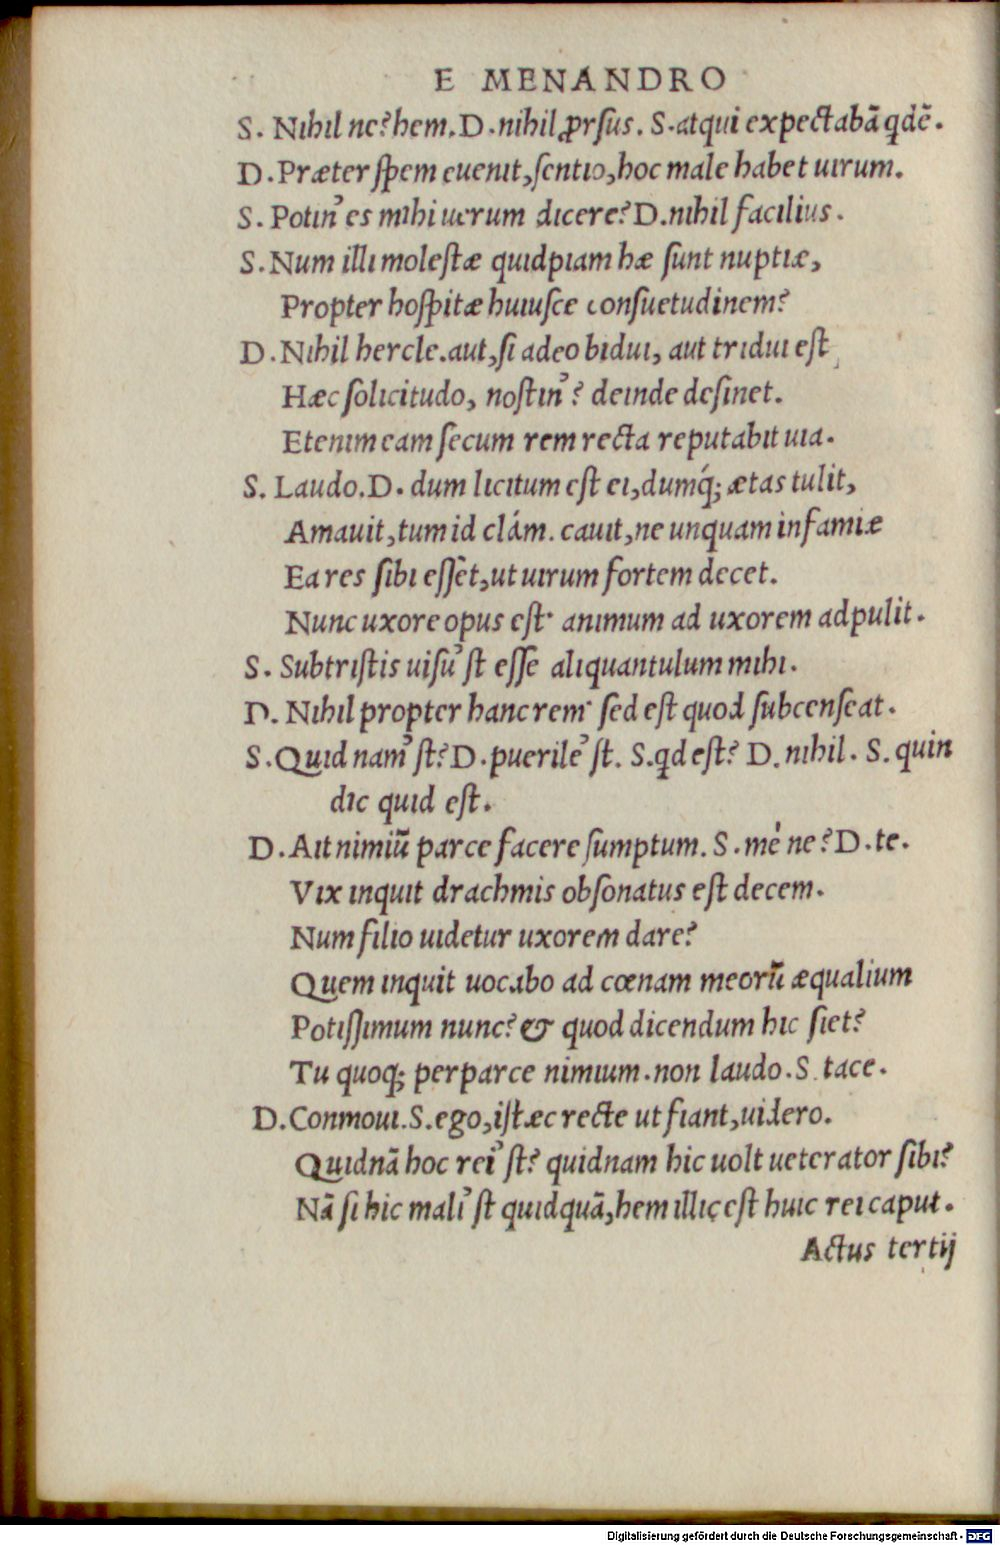 E MENANDRO
S. Nihil ne? hem. D. nihil ꝓrſus. S. atqui expectabã qdẽ.
D. Præter ſpem euenit, ſentio, hoc male habet uirum.
S. Potin' es mihi uerum dicere? D. nihil facilius.
S. Num illi moleſtæ quidpiam hæ ſunt nuptiæ,
Propter hoſpitæ huiuſce conſuetudinem?
D. Nihil hercle. aut, ſi adeo bidui, aut tridui eſt
Hæc ſolicitudo, noſtin'? deinde deſinet.
Etenim eam ſecum rem recta reputabit uia.
S. Laudo. D. dum licitum eſt ei, dumq́; ætas tulit,
Amauit, tum id clám. cauit, ne unquam infamiæ
Ea res ſibi eſſet, ut uirum fortem decet.
Nunc uxore opus eſt· animum ad uxorem adpulit.
S. Subtriſtis uiſu' ſt eſſe aliquantulum mihi.
D. Nihil propter hanc rem· ſed eſt quod ſubcenſeat.
S. Quid nam' ſt? D. puerile' ſt. S. qd eſt? D. nihil. S. quin
dic quid eſt.
D. Ait nimiũ parce facere ſumptum. S. mé ne? D. te.
Vix inquit drachmis obſonatus eſt decem.
Num filio uidetur uxorem dare?
Quem inquit uocabo ad cœnam meorũ æqualium
Potiſſimum nunc? & quod dicendum hic ſiet?
Tu quoq; perparce nimium. non laudo. S. tace.
D. Conmoui. S. ego, iſtæc recte ut fiant, uidero.
Quidnã hoc rei' ſt? quidnam hic uolt ueterator ſibi?
Nã ſi hic mali' ſt quidquã, hem illic eſt huic rei caput.
Actus tertij
Digitalisierung gefördert durch die Deutsche Forschungsgemeinschaft - DFG